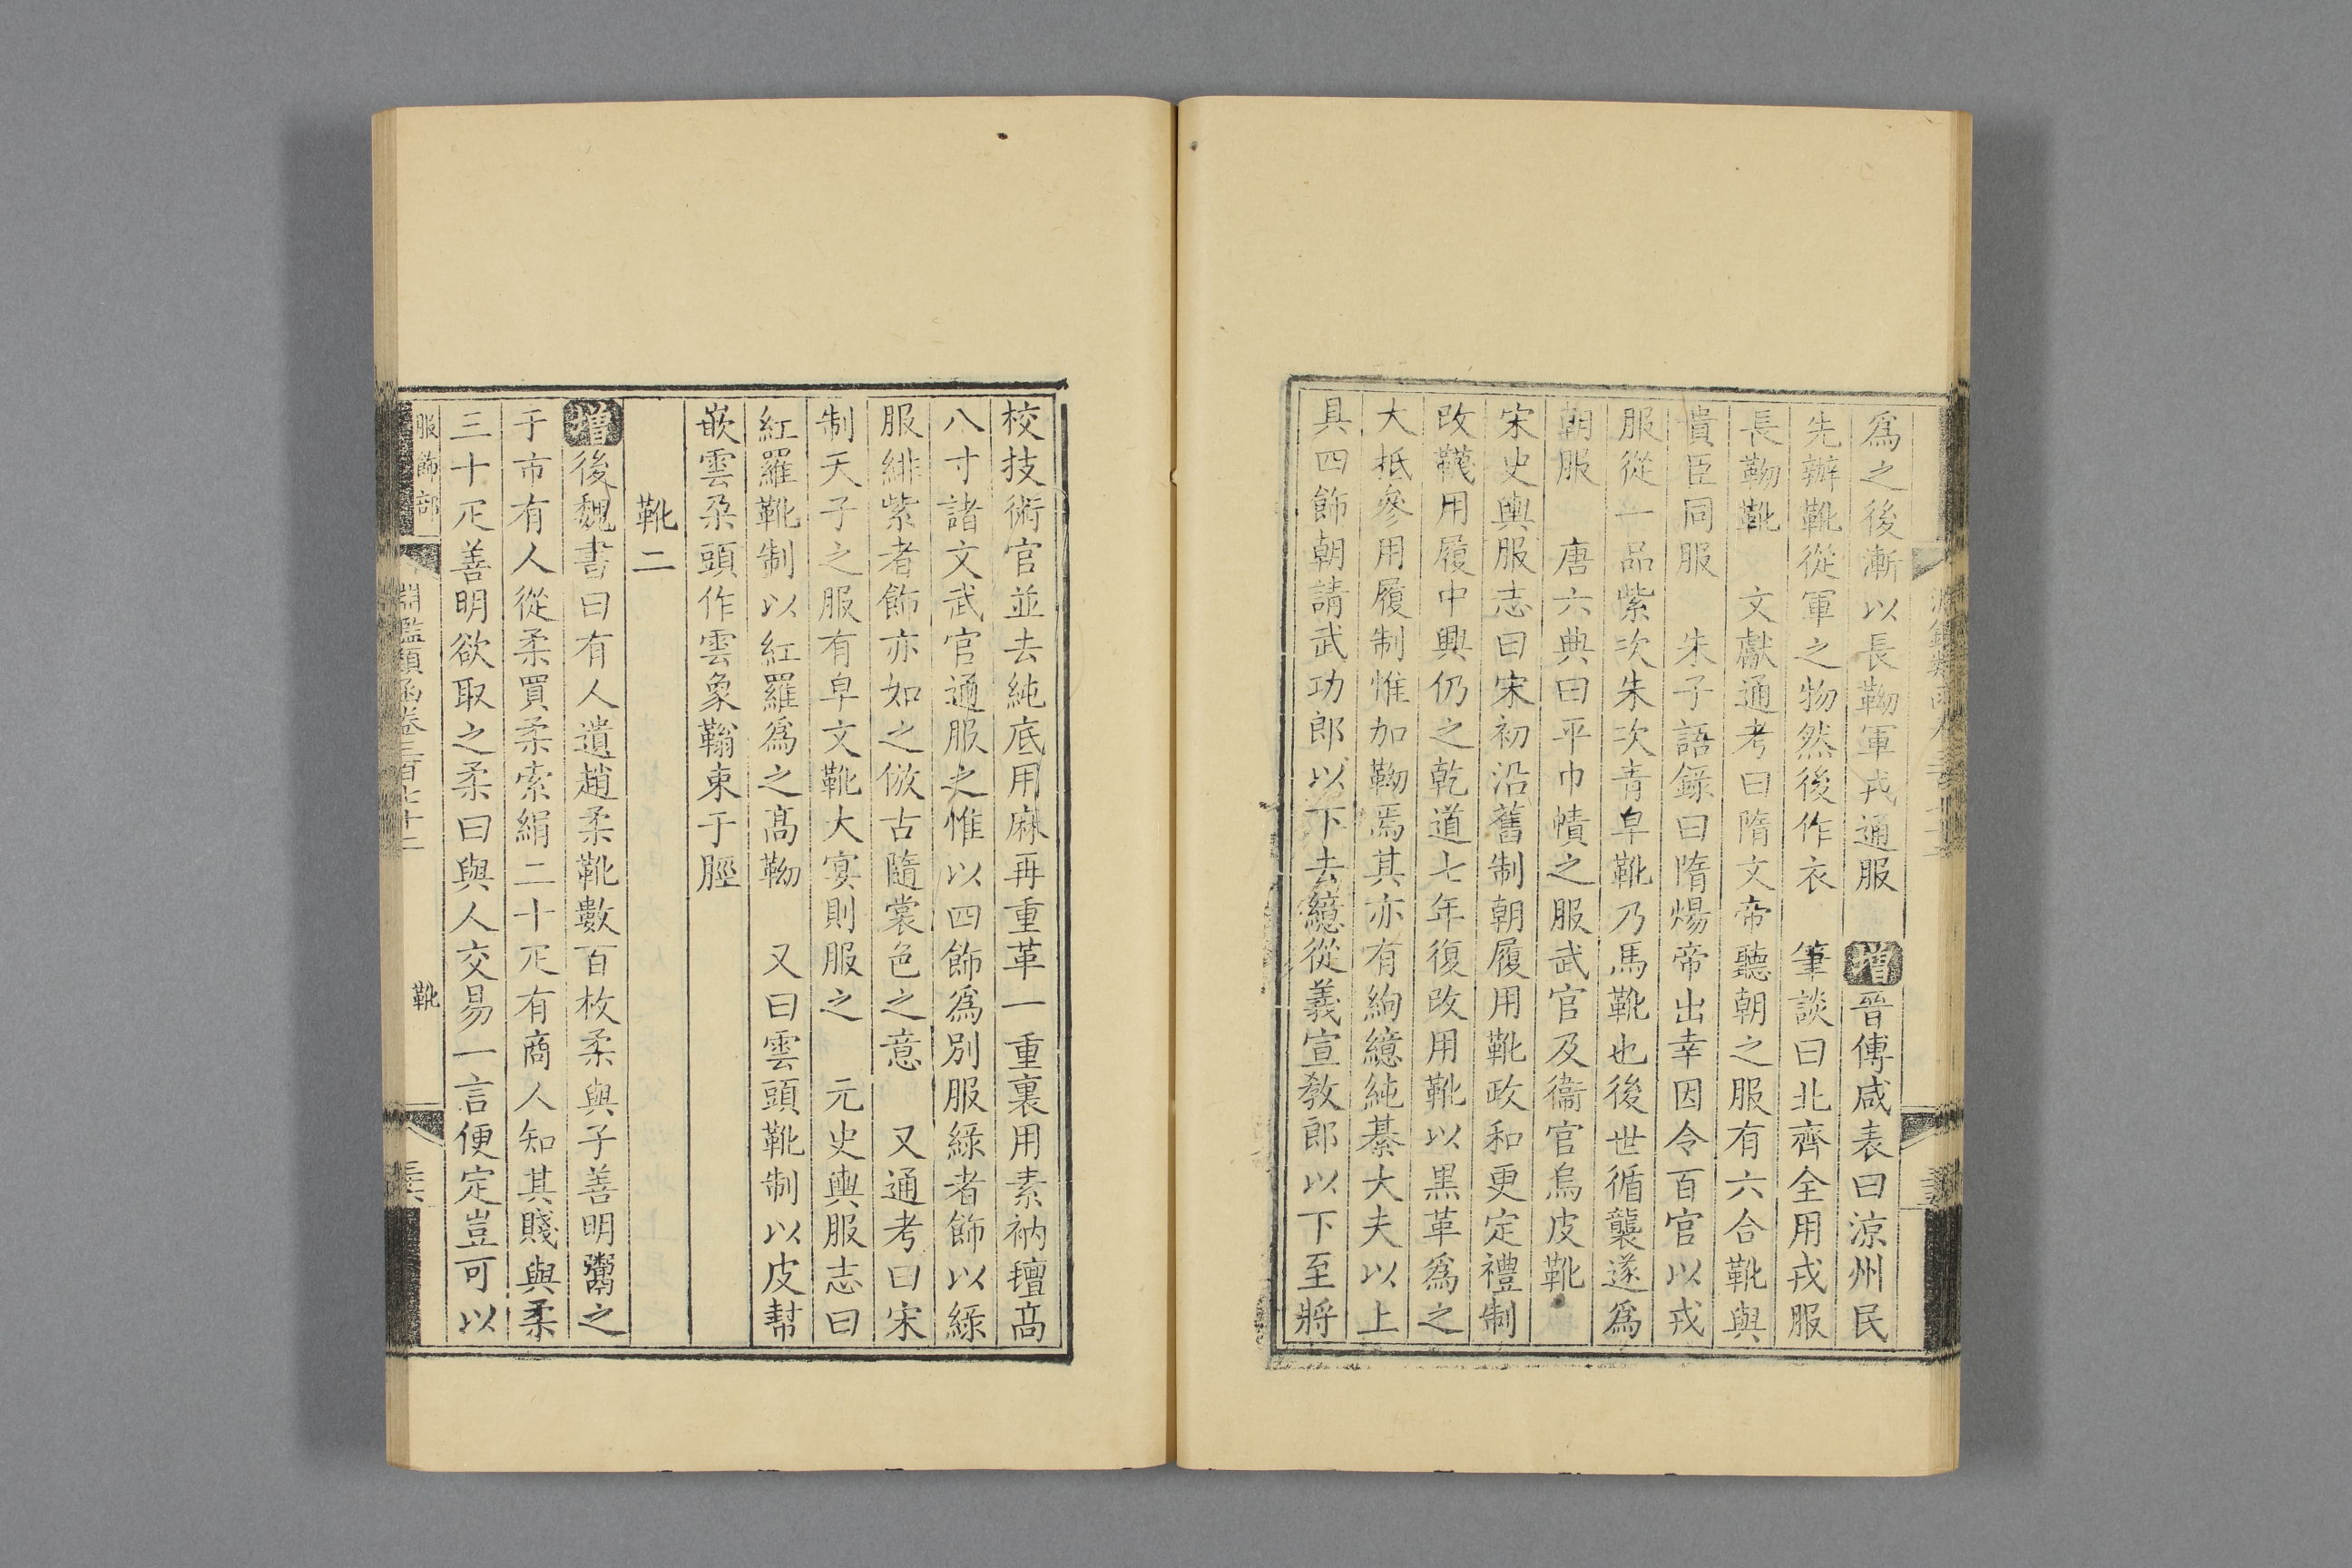 爲之後漸以長靿軍戎通服 增晉傅咸表曰涼州民
先辦靴從軍之物然後作衣 筆談曰北齊全用戎服
長靿靴 文獻通考曰隋文帝聽朝之服有六合靴與
貴臣同服 朱子語錄曰隋煬帝出幸因令百官以戎
服從一品紫次朱次青皁靴乃馬靴也後世循襲遂爲
朝服 唐六典曰平巾幘之服武官及衞官烏皮靴
宋史輿服志曰宋初沿舊制朝履用靴政和更定禮制
改靴用履中興仍之乾道七年復改用靴以黑革爲之
大抵參用履制惟加靿焉其亦有絇繶純綦大夫以上
具四飾朝請武功郎以下去繶從義宣教郎以下至將
校技術官並去純底用麻再重革一重裏用素衲氊高
八寸諸文武官通服之惟以四飾爲別服綠者飾以綠
服緋紫者飾亦如之倣古隨裳色之意 又通考曰宋
制天子之服有皁文靴大宴則服之 元史輿服志曰
紅羅靴制以紅羅爲之高靿 又曰雲頭靴制以皮幫
嵌雲朶頭作雲象鞝束于脛
靴二
增後魏書曰有人遺趙柔靴數百枚柔與子善明鬻之
于市有人從柔買柔索絹二十疋有商人知其賤與柔
三十疋善明欲取之柔曰與人交易一言便定豈可以
服飾部 淵鑑類函卷三百七十二 靴